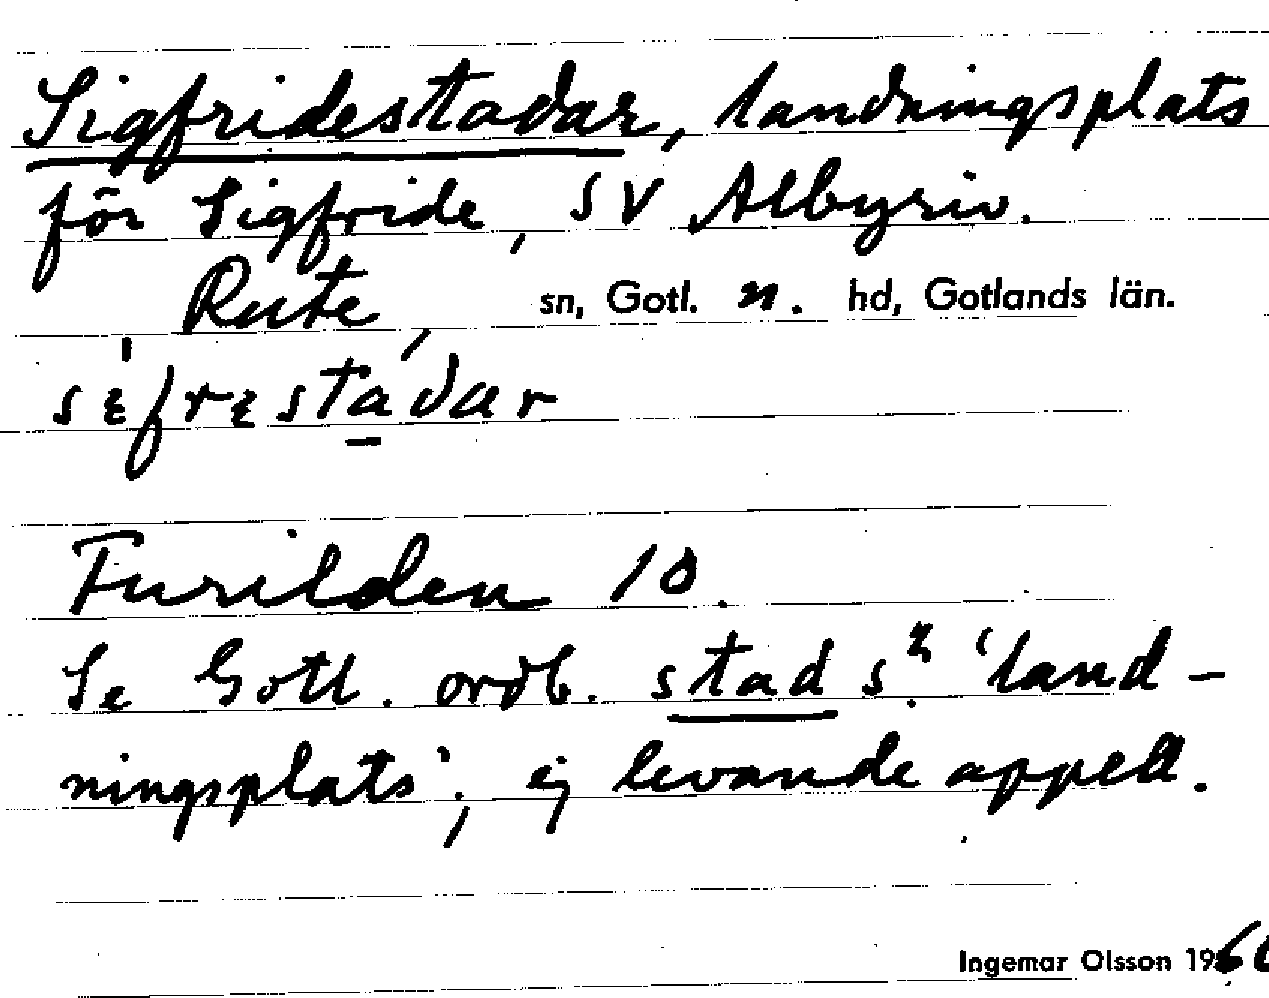 Sigfridestadar, landningsplats
för Sigfride, SV Albyriv.
Rute, sn, Gotl. n. hd, Gotlands län.
sɛ́frɛstadar
Furilden 10.
Se Gotl. ordb. stad s.² 'land-
ningsplats'; ej levande appell.
Ingemar Olsson 1960